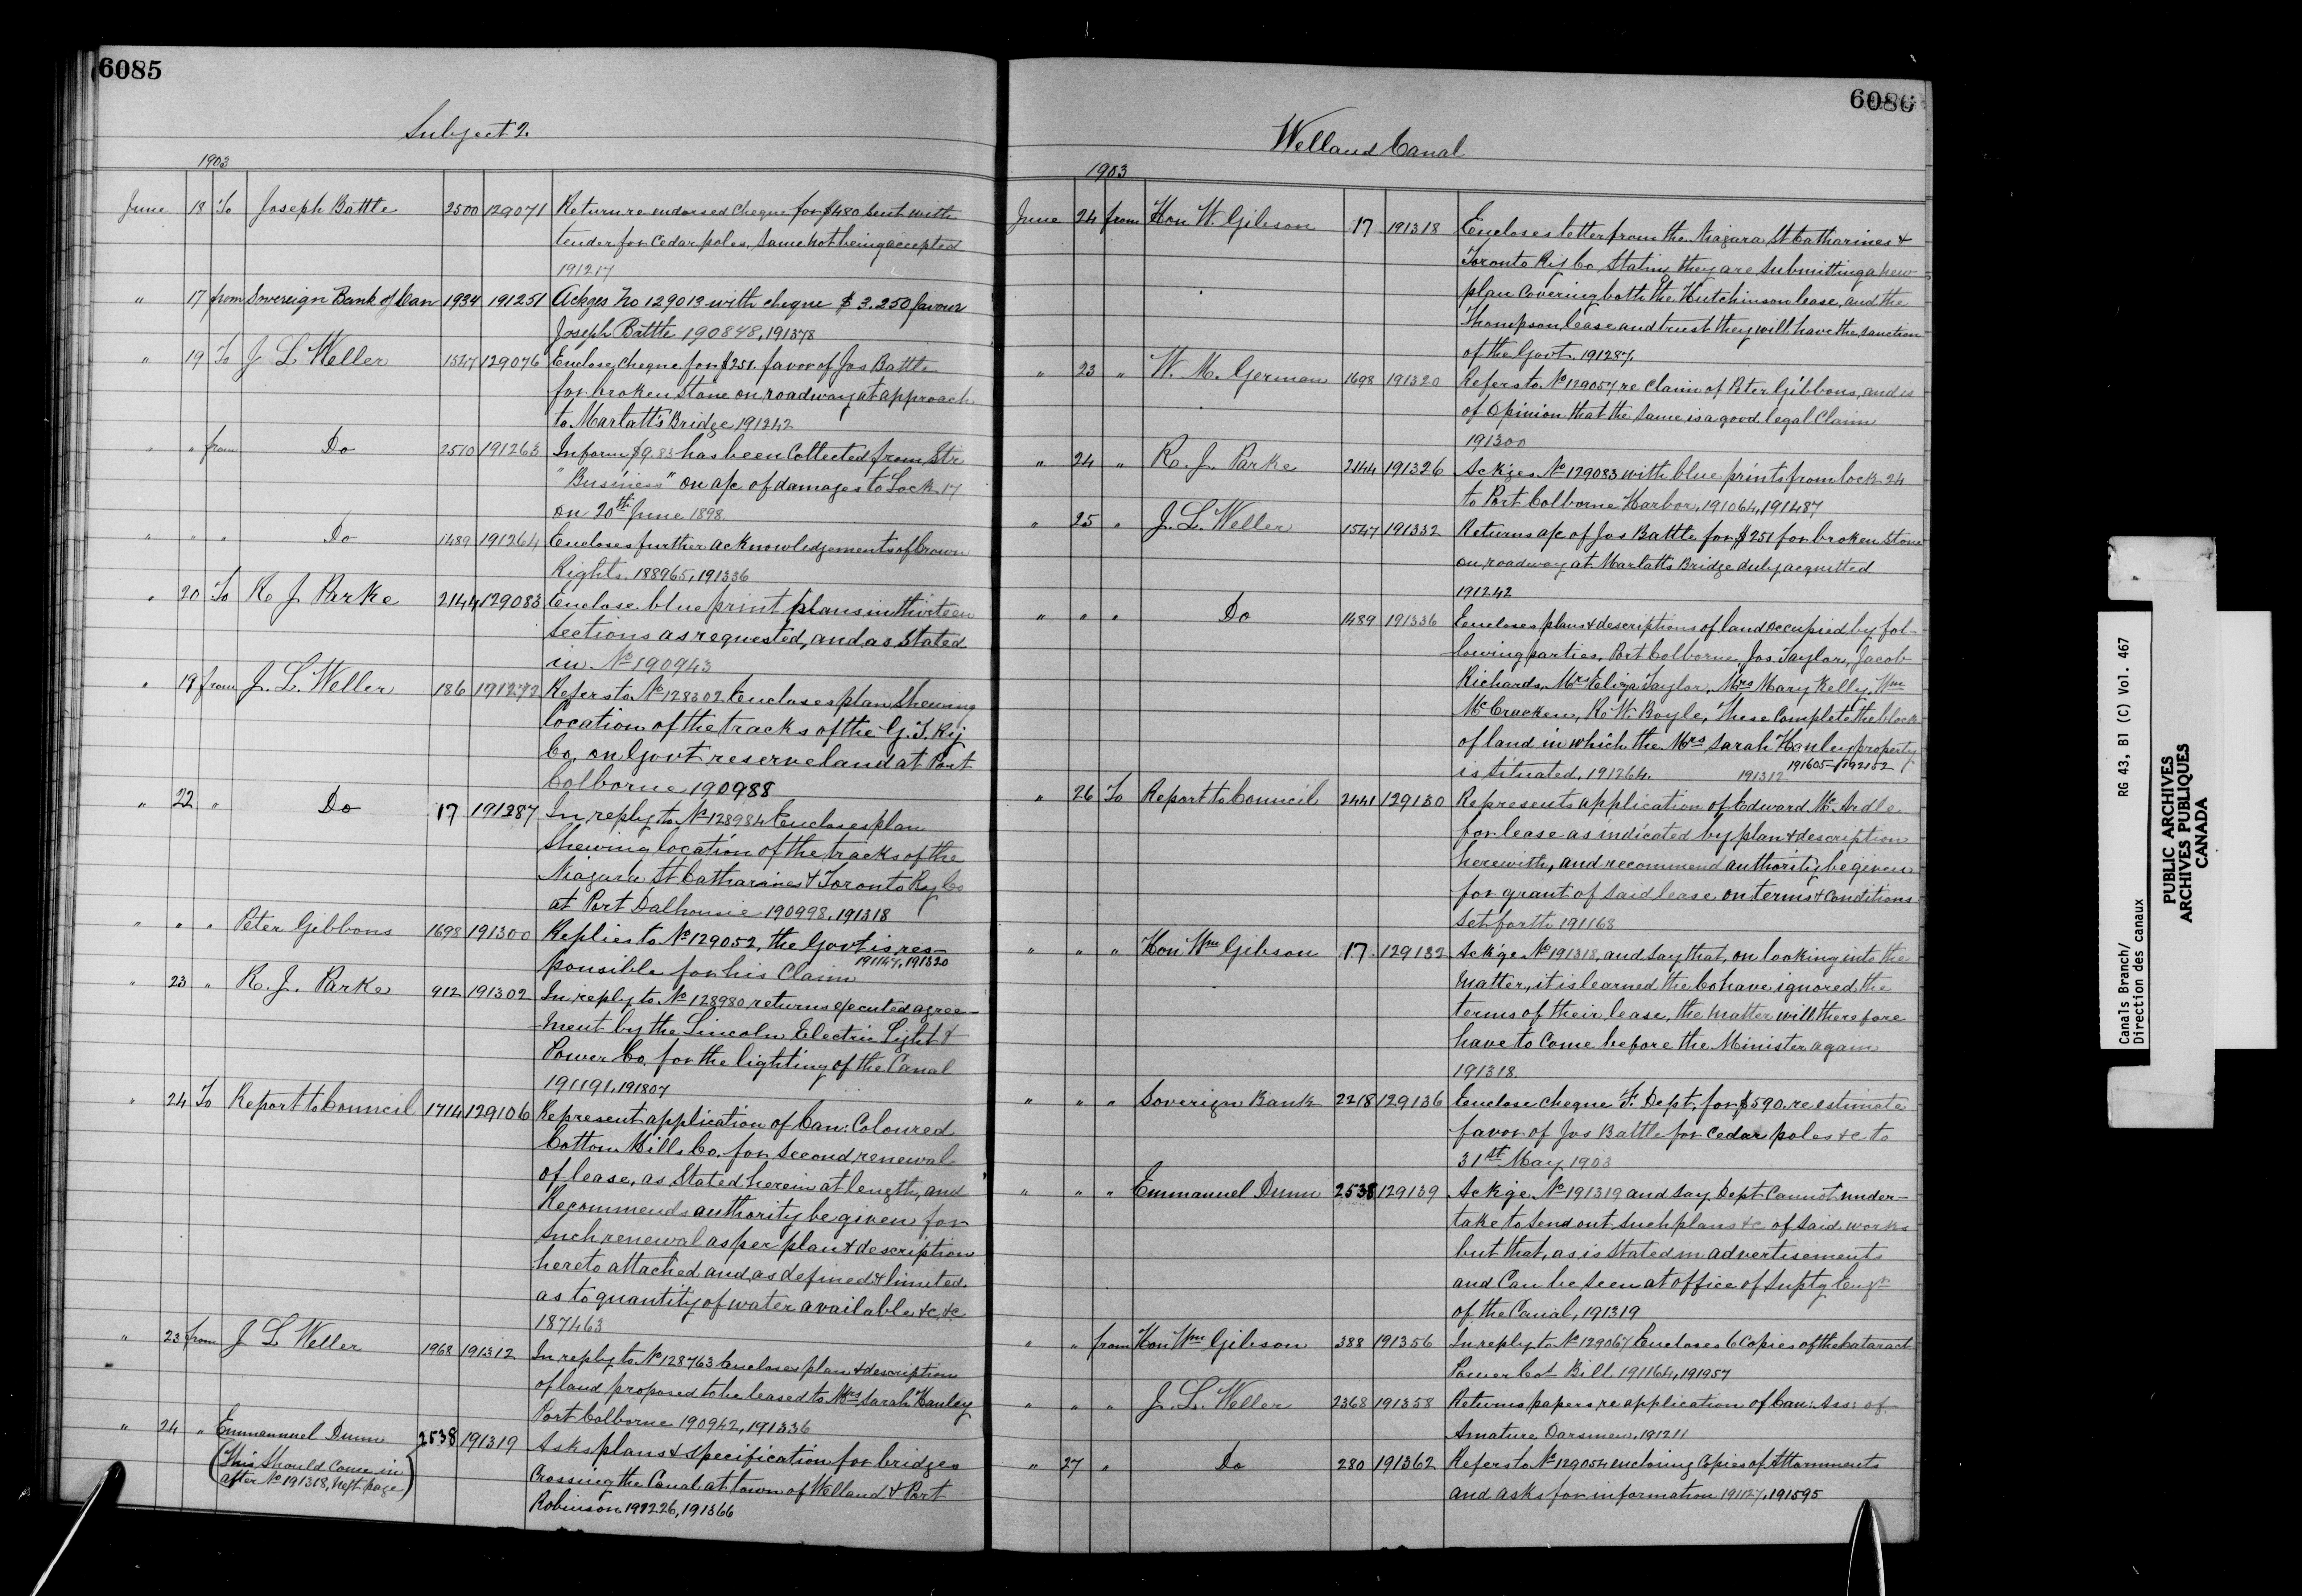 6085
Subject 2.
1903
June 18 To Joseph Battle 2500 129071 Return re endorsed cheque for $480 sent with
tender for cedar poles, same not being accepted
191217
" 17 from Sovereign Bank of Can 1934 191251 Ackges No 129013 with cheque $3.250 favour
Joseph Battle 190848, 191378
" 19 To J L Weller 1547 129076 Enclose cheque for $251. favor of Jos Battle
for broken stone on roadway at approach
to Marlatt's Bridge 191242
" " from Do 2510 191263 Inform $9.83 has been collected from Str
"Business" on a/c of damages to Lock 17
on 20th June 1898.
" " " Do 1489 191264 Encloses further acknowledgements of Crown
Rights. 188965, 191336
" 20 To R J Parke 2144 129083 Enclose blue print plans in thirteen
sections as requested, and as stated
in No 190943
" 19 from J. L. Weller 186 191272 Refers to No 128302 Encloses plan shewing
location of the tracks of the G. T. Ry
Co. on Govt reserve land at Port
Colborne 190988
" 22 " Do 17 191287 In reply to No 128984 Encloses plan
shewing location of the tracks of the
Niagara St Catharines & Toronto Ry Co
at Port Dalhousie 190998, 191318
" " " Peter Gibbons 1698 191300 Replies to No 129052, the Govt is res-
ponsible for his claim 191147, 191320
" 23 " R. J. Parke 912 191302 In reply to No 128980 returns executed agree-
ment by the Lincoln Electric Light &
Power Co. for the lighting of the Canal
191191, 191807
" 24 To Report to Council 1714 129106 Represent application of Can: Coloured
Cotton Mills Co. for second renewal
of lease, as stated herein at length, and
Recommends authority be given for
such renewal as per plan & description
hereto attached and as defined & limited
as to quantity of water available &c, &c
187463
" 23 from J L Weller 1968 191312 In reply to No 128763 Encloses plan & description
of land proposed to be leased to Mrs Sarah Hanley
Port Colborne 190942, 191336
" 24 " Emmanuel Dunn 2538 191319 Asks plans & specification for bridges
(This should come in
after No 191318, next page)
crossing the Canal at town of Welland & Port
Robinson 192226, 191366
6086
Welland Canal
1903
June 24 from Hon W. Gibson 17 191318 Encloses letter from the Niagara St Catharines &
Toronto Ry Co, stating they are submitting a new
plan covering both the Hutchinson lease, and the
Thompson lease and trust they will have the sanction
of the Govt. 191287.
" 23 " W. M. German 1698 191320 Refers to No 129057 re claim of Peter Gibbons, and is
of opinion that the same is a good legal claim
191300
" 24 " R. J. Parke 2144 191326 Ackges No 129083 with blue prints from lock 24
to Port Colborne Harbor, 191064, 191487
" 25 " J. L. Weller 1547 191332 Returns a/c of Jos Battle for $251 for broken stone
on roadway at Marlatt's Bridge duly acquitted
191242
" " " Do 1489 191336 Encloses plans & descriptions of land occupied by fol-
lowing parties, Port Colborne, Jos. Taylor, Jacob
Richards, Mrs Eliza Taylor, Mrs Mary Kelly, Wm
McCracken, R. W. Boyle, These complete the block
of land in which the Mrs Sarah Hanley property
is situated, 191264. 191312 191605 192152
" 26 To Report to Council 2441 129130 Represents application of Edward McArdle
for lease as indicated by plan & description
herewith, and recommend authority be given
for grant of said lease on terms & conditions
set forth 191168
" " " Hon Wm Gibson 17 129132 Ackge No 191318, and say that, on looking into the
matter, it is learned the Co have ignored the
terms of their lease, the matter will therefore
have to come before the Minister again
191318.
" " " Soverign Bank 2218 129136 Enclose cheque F. Dept. for $590. re estimate
favor of Jos Battle for cedar poles &c to
31st May 1903
" " " Emmanuel Dunn 2538 129139 Ackge No 191319 and say Dept cannot under-
take to send out such plans &c of said works
but that, as is stated in advertisements
and can be seen at office of Supt'g Engr
of the Canal, 191319
" " from Hon Wm Gibson 388 191356 In reply to No 129067 Encloses 6 copies of the Cataract
Power Co's Bill 191164, 191957
" " " J. L. Weller 2368 191358 Returns papers re application of Can: Ass: of
Amature Oarsmen, 191211
" 27 " Do 280 191362 Refers to No 129054 encloing copies of Attornments
and asks for information 191127, 191595
Canals Branch/
Direction des canaux
RG 43, B1 (C) Vol. 467
PUBLIC ARCHIVES
ARCHIVES PUBLIQUES
CANADA